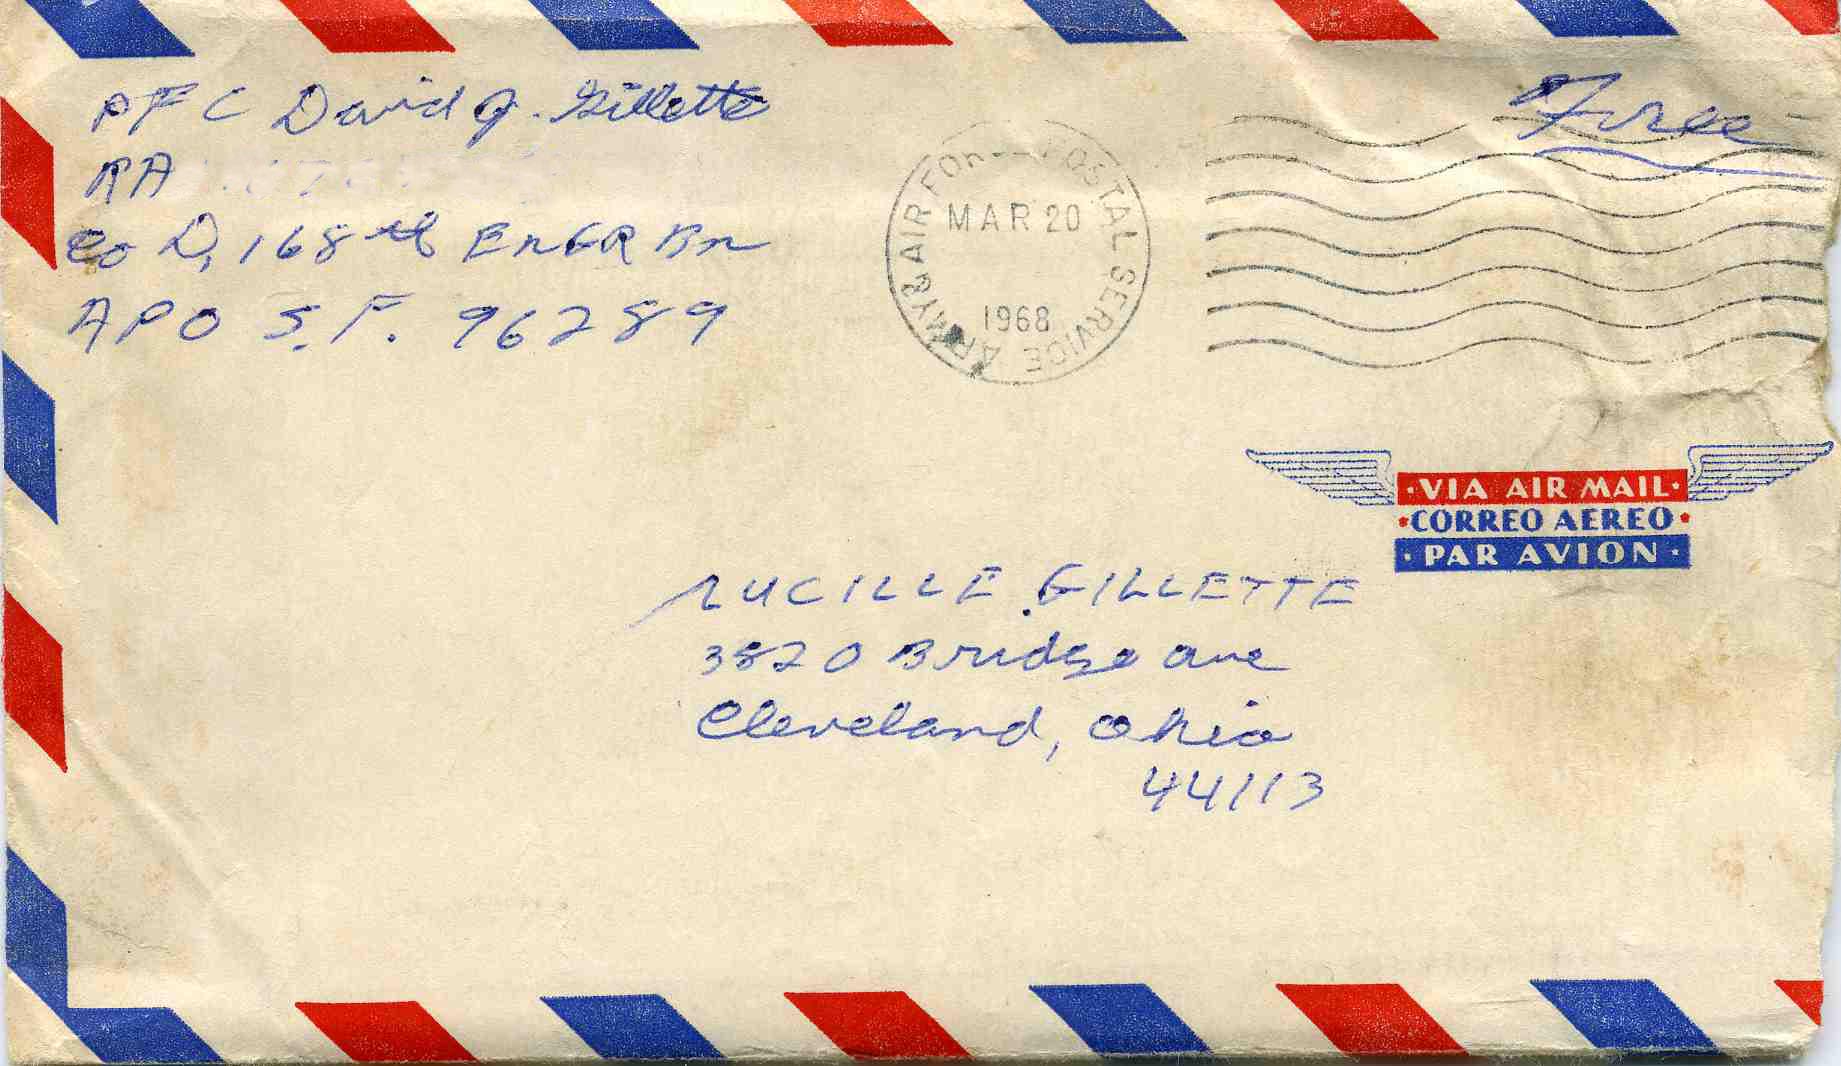 PFC David J. Gillette
RA
Co D, 168th EnGR Bn
APO S.F. 96289
ARMY & AIR FORCE POSTAL SERVICE
MAR 20
1968
Free
VIA AIR MAIL
CORREO AEREO
PAR AVION
LUCILLE GILLETTE
3820 Bridge Ave
Cleveland, Ohio
44113